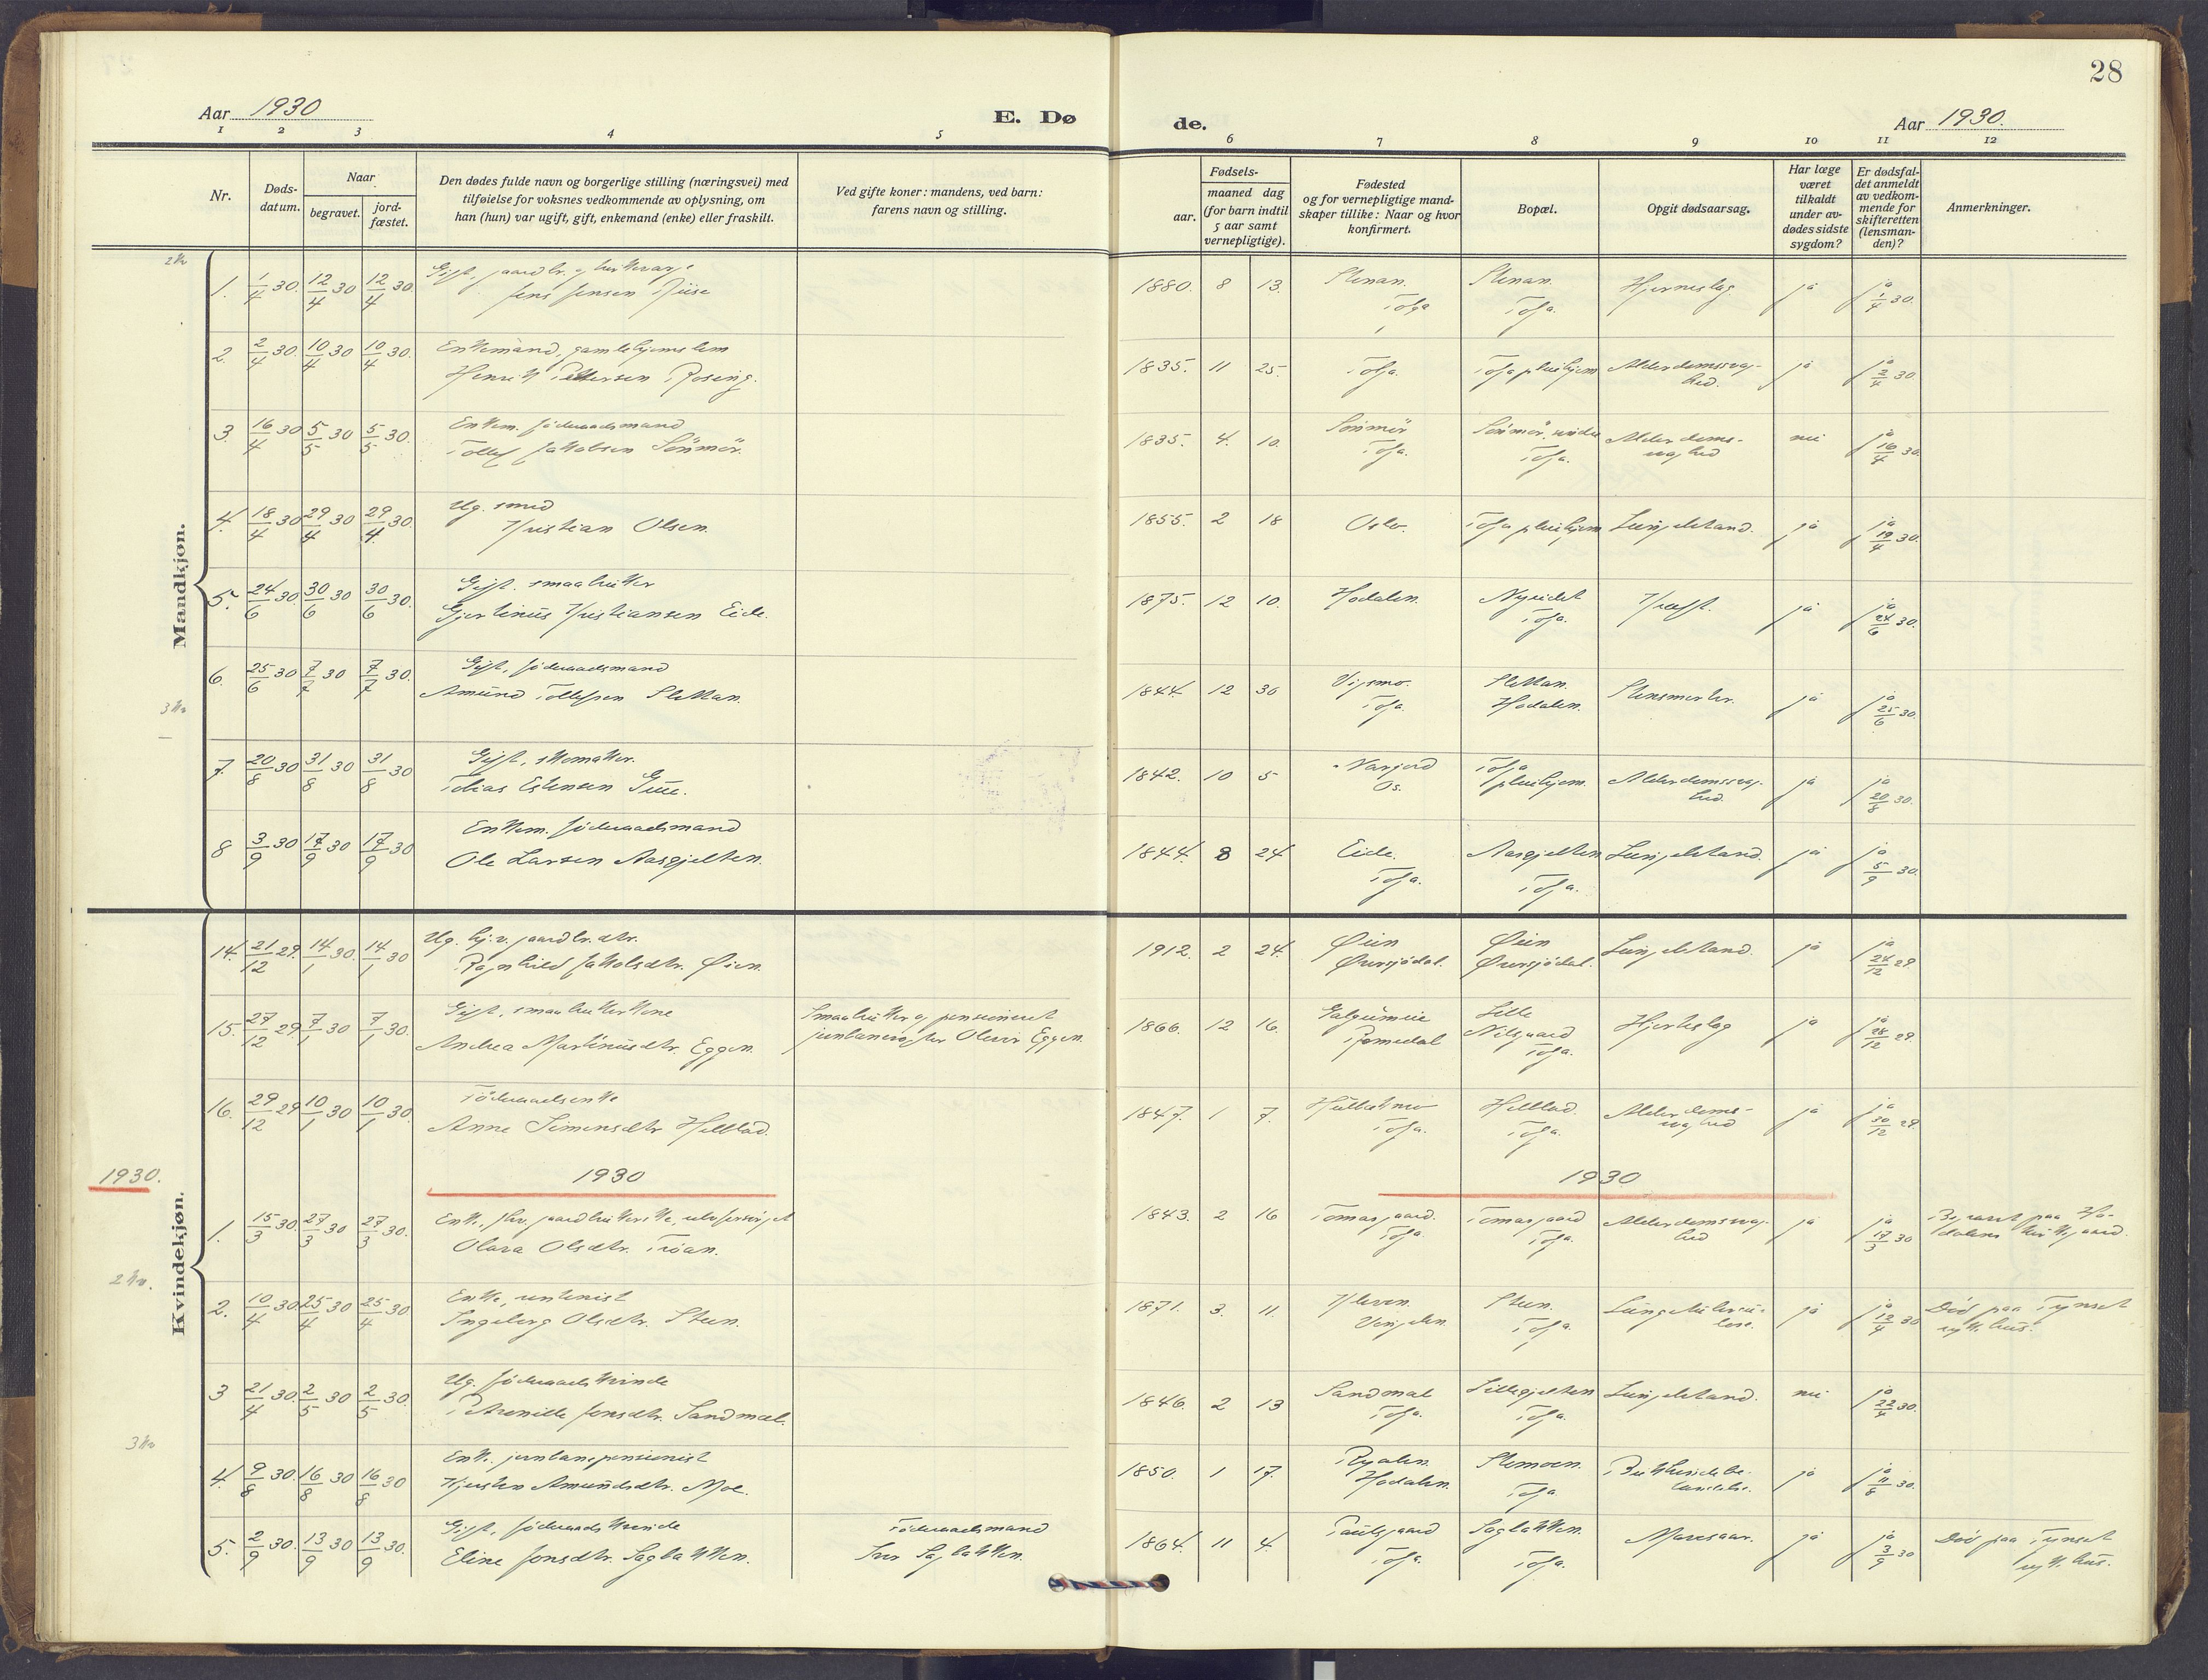 28
Aar 1930
E. Dø
de.
Aar 1930.
1 2 3 4 5 6 7 8 9 10 11 12
Nr.
Døds-
datum.
Naar
begravet.
jord-
fæstet.
Den dødes fulde navn og borgerlige stilling (næringsvei) med
tilføielse for voksnes vedkommende av oplysning, om
han (hun) var ugift, gift, enkemand (enke) eller fraskilt.
Ved gifte koner: mandens, ved barn:
farens navn og stilling.
Fødsels-
aar.
maaned dag
(for barn indtil
5 aar samt
vernepligtige).
Fødested
og for vernepligtige mand-
skaper tillike: Naar og hvor
konfirmert.
Bopæl.
Opgit dødsaarsag.
Har læge
været
tilkaldt
under av-
dødes sidste
sygdom?
Er dødsfal-
det anmeldt
av vedkom-
mende for
skifteretten
(lensman-
den)?
Anmerkninger.
Mandkjøn.
1. 1/4 30. 12/4 30 12/4 30 Gift, gaardbr.
Jens Jensen 1880. 8 13. Stenan. Tolga Stenan. Tolga. ja ja 1/4 30.
2. 2/4 30. 10/4 30 10/4 30. Enkemand, gamlehjemslem
Henrik Pettersen Røseng. 1835. 11 25. Tolga. Tolga pleiehjem Alderdomssvag-
hed. ja ja 2/4 30.
3. 16/4 30 5/5 30 5/5 30. Enkem. föderaadsmand
Tollef Jakobsen Sönmör. 1835. 4. 10. Sönmör Tolga. Sönmör Tolga. Alderdoms-
svaghed nei ja 16/4 30.
4. 18/4 30 29/4 30 29/4 30. Ug. smed
Kristian Olsen. 1855. 2 18 Oslo. Tolga pleiehjem Lungebetænd. ja ja 19/4 30.
5. 24/6 30. 30/6 30 30/6 30. Gift. smaabruker
Gjertinus Kristiansen Eide. 1875. 12 10. Hodalen. Nyeidet Tolga. Kræft. ja ja 24/6 30.
6. 25/6 30 7/7 30 7/7 30. Gift, föderaadsmand
Amund Tollefsen Slettan. 1844. 12 30 Vigsmo. Tolga. Slettan. Hodalen. ja ja 25/6 30.
7. 20/8 30 31/8 30 31/8 30 Gift, skomaker.
Tobias Estensen 1842. 10 5 Narjord Os. Tolga pleiehjem. Alderdomssvag-
hed. ja ja 20/8 30.
8 3/9 30 17/9 30 17/9 30 Enkem. föderaadsmand
Ole Larsen Aasgjelten. 1844. 8 24 Eide. Tolga. Aasgjelten Tolga. Lungebetænd. ja ja 5/9 30.
Kvindekjøn.
14. 21/12 29. 14/1 30. 14/1 30 Ug. hj.v. gaardbr. dtr.
Ragnhild Jakobsdtr. Øien. 1912. 2 24. Øien Øversjödal. Øien Øversjödal. Lungebetænd. ja ja 24/12 29.
15. 27/12 29. 7/1 30 7/1 30. Gift, smaabrukerkone
Andrea Martinusdtr. Eggen. Smaabruker og pensioneret
Eggen. 1866. 12 16. Romedal Lille Nilsgaard Tolga. Hjerteslag ja ja 28/12 29.
16. 29/12 29 10/1 30 10/1 30. Föderaadsenke
Anne Simensdtr. 1847. 1 7. Tolga. Tolga. Alderdoms-
svaghed ja ja 30/12 29.
1930.
1930
1930
1. 15/3 30. 27/3 30 27/3 30. Enke,
Olava Olsdtr. Tröan. 1843. 2 16 Tomasgaard. Tolga. Tomasgaard Tolga. Alderdomssvag-
hed ja ja 17/3 30 Begravet paa Ho-
dalens kirkegaard.
2. 10/4 30 25/4 30 25/4 30 Enke,
Ingeborg Olsdtr. Steen. 1871. 3. 11. Kleven. Vingelen. Steen. Tolga. Lungetuberku-
lose. ja ja 12/4 30 Död paa Tynset
sykehus.
3 21/4 30. 2/5 30 2/5 30. Ug. föderaadskvinde
Petronille Jonsdtr. Sandmæl. 1846. 2 13 Sandmæl Tolga. Lillegjelten Tolga. Lungebetænd. nei ja 22/4 30.
4. 9/8 30. 16/8 30 16/8 30 Enke. jernbanepensionist
Kjersten Amundsdtr. Moe. 1850. 1 17. Ryalen. Hodalen. Stemoen. Tolga ja ja 11/8 30.
5. 2/9 30. 13/9 30 13/9 30. Gift, föderaadskvinde
Eline Jonsdtr. Sagbakken. Föderaadsmand
Iver Sagbakken. 1864. 11 4. Paulsgaard Tolga. Sagbakken. Tolga. Mavesaar. ja ja 3/9 30 Död paa Tynset
sykehus.